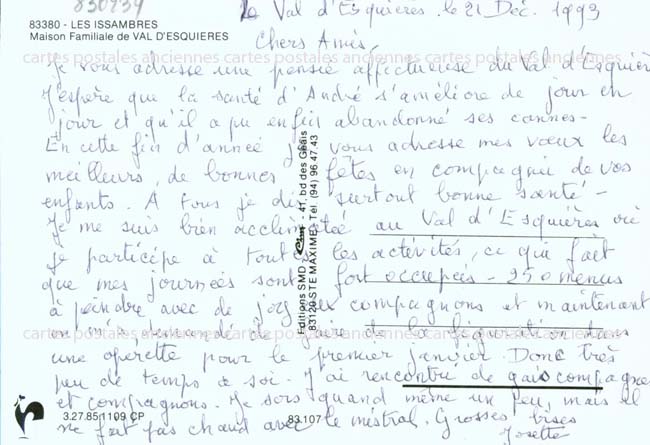 830739
83380 - LES ISSAMBRES
Maison Familiale de VAL D'ESQUIERES
Le Val d'Esquières, le 21 Déc. 1993
Chers Amis,
Je vous adresse une pensée affectueuse du Val d'Esquières
J'espère que la santé d'André s'améliore de jour en
jour et qu'il a pu enfin abandonné ses cannes -
En cette fin d'année je vous adresse mes vœux les
meilleurs, de bonnes fêtes en compagnie de vos
enfants. A tous je dis surtout bonne santé -
Je me suis bien acclimatée au Val d'Esquières où
je participe à toutes les activités, ce qui fait
que mes journées sont fort occupées - 250 menus
à peindre avec de joyeux compagnons et maintenant
on m'a demandé de faire de la figuration dans
une operette pour le premier janvier. Donc très
peu de temps à soi. J'ai rencontré de gais compagnes
et compagnons. Je sors quand même un peu, mais il
ne fait pas chaud avec le mistral. Grosses bises
Josette
Editions SMD - 41, bd des Geais
83120 STE MAXIME - Tél. (94) 96.47.43
3.27.85.1109 CP
83.107
cartes postales anciennes cartes postales anciennes cartes postales anciennes
cartes postales anciennes cartes postales anciennes cartes postales anciennes